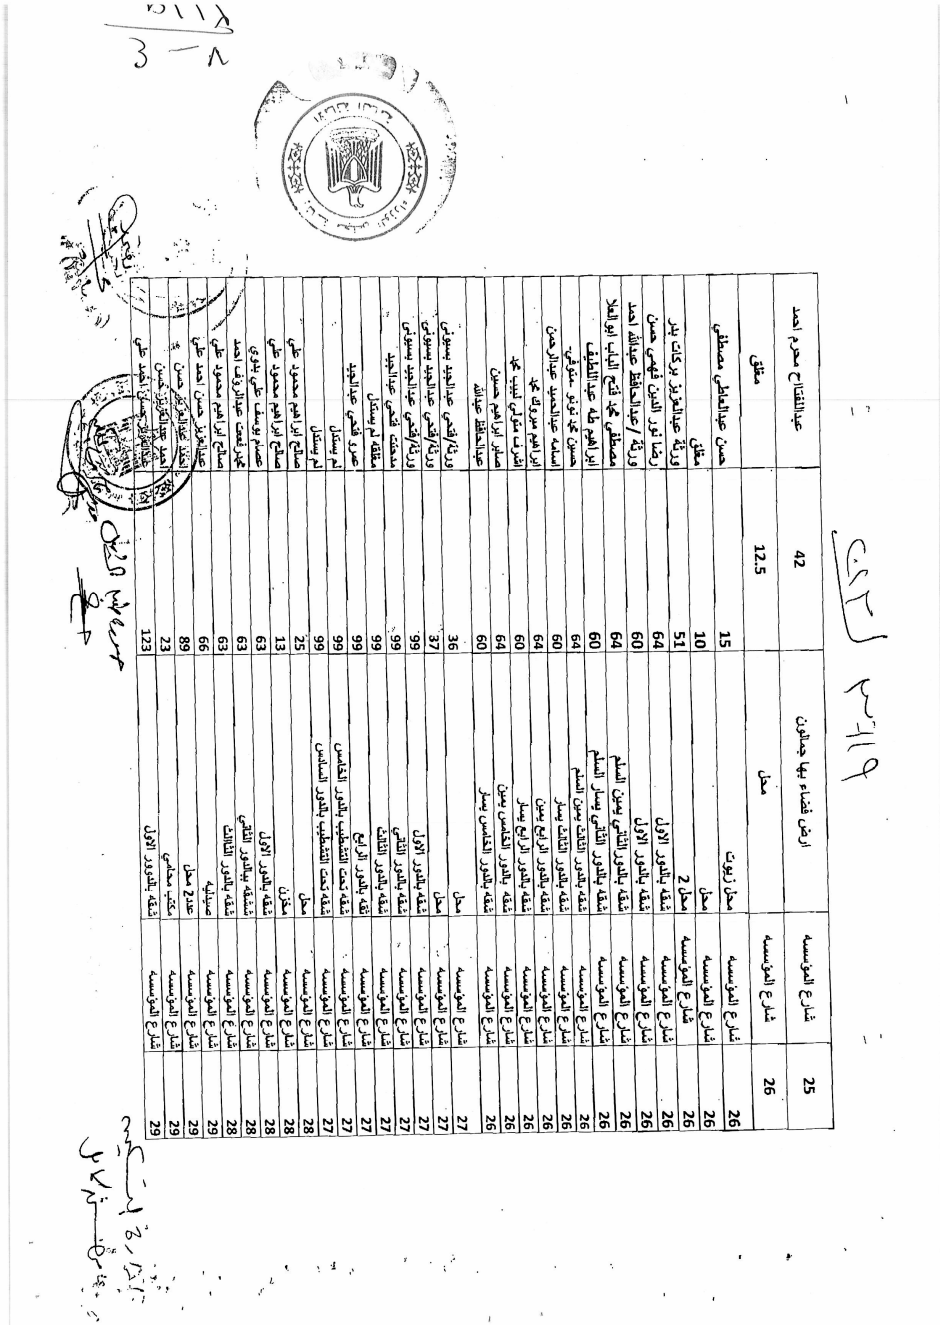 25 شارع المؤسسه ارض فضاء بها جمالون 42 عبدالفتاح محرم احمد
26 شارع المؤسسه محل 12.5 مغلق
26 شارع المؤسسه محل زيوت 15 حسن عبدالعاطي مصطفي
26 شارع المؤسسه محل 10 مغلق
26 شارع المؤسسه محل 2 51 ورثة عبدالعزيز بركات بدر
26 شارع المؤسسه شقه بالدور الاول 64 رضا نور الدين فهمي حسن
26 شارع المؤسسه شقه بالدور الاول 60 ورثة /عبدالحافظ عبدالله احمد
26 شارع المؤسسه شقه بالدور الثاني يمين السلم 64 مصطفي محمد فتح الباب ابوالعلا
26 شارع المؤسسه شقه بالدور الثاني يسار السلم 60 ابراهيم طه عبداللطيف
26 شارع المؤسسه شقه بالدور الثالث يمين السلم 64 حسين محمد نونو متوفي
26 شارع المؤسسه شقه بالدور الثالث يسار 60 اسامه عبدالحميد عبدالرحمن
26 شارع المؤسسه شقه بالدور الرابع يمين 64 ابراهيم مبروك محمد
26 شارع المؤسسه شقه بالدور الرابع يسار 60 اشرف متولي لبيب محمد
26 شارع المؤسسه شقه بالدور الخامس يمين 64 صابر ابراهيم حسين
26 شارع المؤسسه شقه بالدور الخامس يسار 60 عبدالحافظ عبدالله
27 شارع المؤسسه محل 36 ورثة/فتحي عبدالجيد بسيوني
27 شارع المؤسسه محل 37 ورثة/فتحي عبدالجيد بسيوني
27 شارع المؤسسه شقه بالدور الاول 99 ورثة/فتحي عبدالجيد بسيوني
27 شارع المؤسسه شقه بالدور الثاني 99 مدحت فتحي عبدالجيد
27 شارع المؤسسه شقه بالدور الثالث 99 مغلقه لم يستدل
27 شارع المؤسسه شقه بالدور الرابع 99 عمرو فتحي عبدالجيد
27 شارع المؤسسه شقه تحت التشطيب بالدور الخامس 99 لم يستدل
27 شارع المؤسسه شقه تحت التشطيب بالدور السادس 99 لم يستدل
28 شارع المؤسسه محل 25 صالح ابراهيم محمود علي
28 شارع المؤسسه مخزن 13 صالح ابراهيم محمود علي
28 شارع المؤسسه شقه بالدور الاول 63 عصام يوسف علي بدوي
28 شارع المؤسسه شقه بالدور الثاني 63 محمد رفعت عبدالروف احمد
28 شارع المؤسسه شقه بالدور الثالث 63 صالح ابراهيم محمود علي
29 شارع المؤسسه صيدليه 66 عبدالعزيز حسن احمد علي
29 شارع المؤسسه عدد2 محل 89 احمد عبدالعزيز حسن
29 شارع المؤسسه مكتب محامي 23 احمد عبدالعزيز حسن
29 شارع المؤسسه شقه بالدوور الاول 123 عبدالعزيز حسن احمد علي